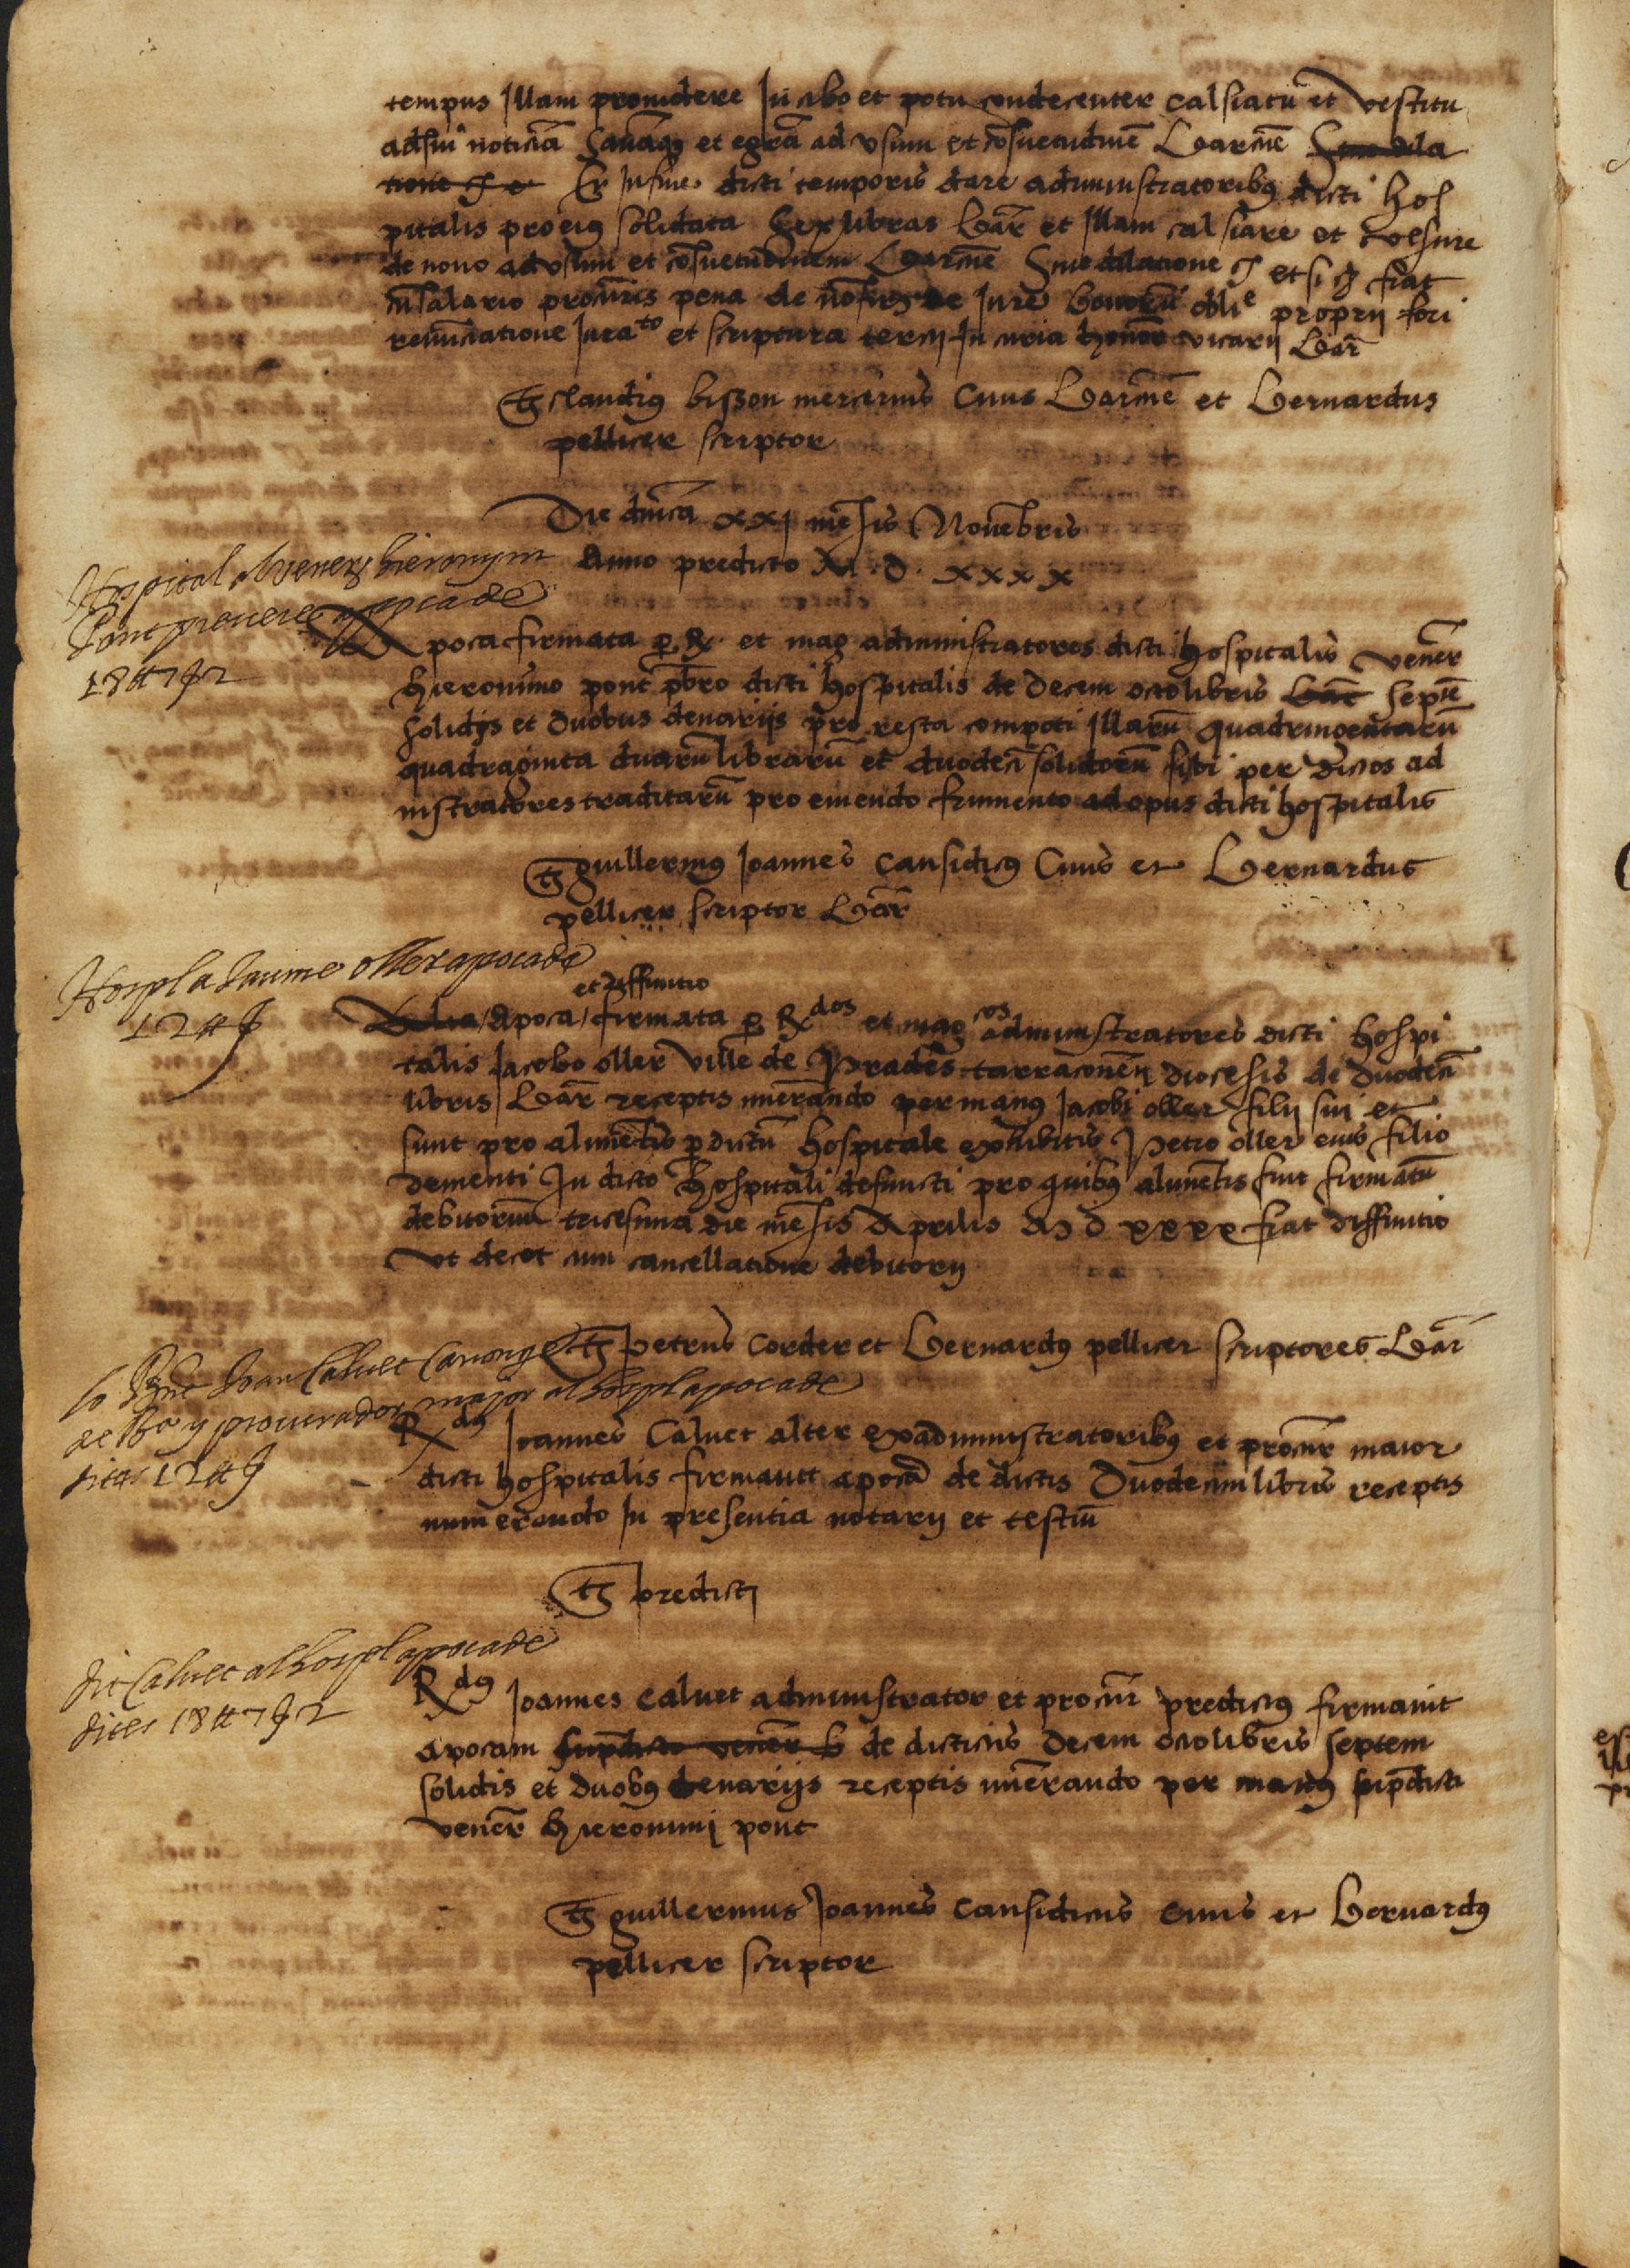 tempus Illam prouidere In cibo et potu condecenter calsiatu et vestitu
ad sui noticia Sanãqȝ et egrã ad vsum et cõsuetudinẽ Barcñe Sine dila
tione Et In fine dicti temporis dare administratoribꝯ dicti hos
pitalis pro eiꝯ solidata Sex libras Barc̃ et Illam calsiare et vestire
de nouo ad vsum et cõsuetudinem Barcñe Sine dilatione et si fiat
salario procuris pena de Iure bonorũ obliᵉ proprij fori
renũciatione Iuraᵗᵒ et scriptura tercij In curia honor vicarij Barc̃
Tȝ claudiꝯ bisson mercerius Ciuis Barcñe et Bernardus
pellicer scriptor
Die dñica xxj mẽsis Nouẽbris
Anno predicto M. D. xxxx
Hospital a Mẽ vener hieronym
Pont preuere appoca de
18 ℔ 7 ẞ 2
Apoca firmata ꝑ R. et mag administratores dicti hospitalis vener̃
hieronimo pont p̃bro dicti hospitalis de Decem octo libris Barc̃ septẽ
solidis et duobus denarijs pro resta compoti Illarũ quadringentarũ
quadraginta duarũ librarũ et duodecĩ solidorũ sibi per dictos ad
nistratores traditarũ pro emendo frumento ad opus dicti hospitalis
Tȝ guillermꝯ Ioannes Causidicꝯ Ciuis et Bernardus
pellicer scriptor Barc̃
Hospl a Jaume oller apoca de
12 ℔ ẞ
et diffinitio
Apoca / firmata ꝑ Rᵈᵒˢ et magᶜᵒˢ administratores dicti hospi
talis Iacobo oller ville de Prades tarraconeñ diocesis de Duodecĩ
libris Barc̃ receptis numerando per manꝯ Iacobi oller filij sui et
sunt pro alimẽtis ꝑ dictũ hospitale exhibitis Petro oller eius filio
dementi In dicto hospitali defuncti pro quibꝯ alimẽtis fuit firmatũ
debitorium tricesima die mẽsis Aprilis M D xxxx fiat diffinitio
vt decet cum cancellatione debitorij
Tȝ petrus corder et Bernardꝯ pellicer scriptores Barc̃
lo Rnt Joan Caluet Canonge
de Bar y procurador major al hospl apoca de
dites 12 ℔ ẞ
Rᵈꝯ Ioannes Caluet alter ex administratoribꝯ et procur̃ maior
dicti hospitalis firmauit apocã de dictis Duodecim libris receptis
numerando In presentia notarij et testiũ
Tȝ predicti
dit Caluet al hospl apoca de
dites 18 ℔ 7 ẞ 2
Rᵈꝯ Ioannes caluet administrator et procur̃ predictꝯ firmauit
apocam supdicto vener̃ de dicticus Decem octo libris septem
solidis et duobꝯ denarijs receptis numerando per manꝯ sup̃dicti
vener̃ hieronimi pont
Tȝ guillermus Ioannes Causidicus ciuis et Bernardꝯ
pellicer scriptor